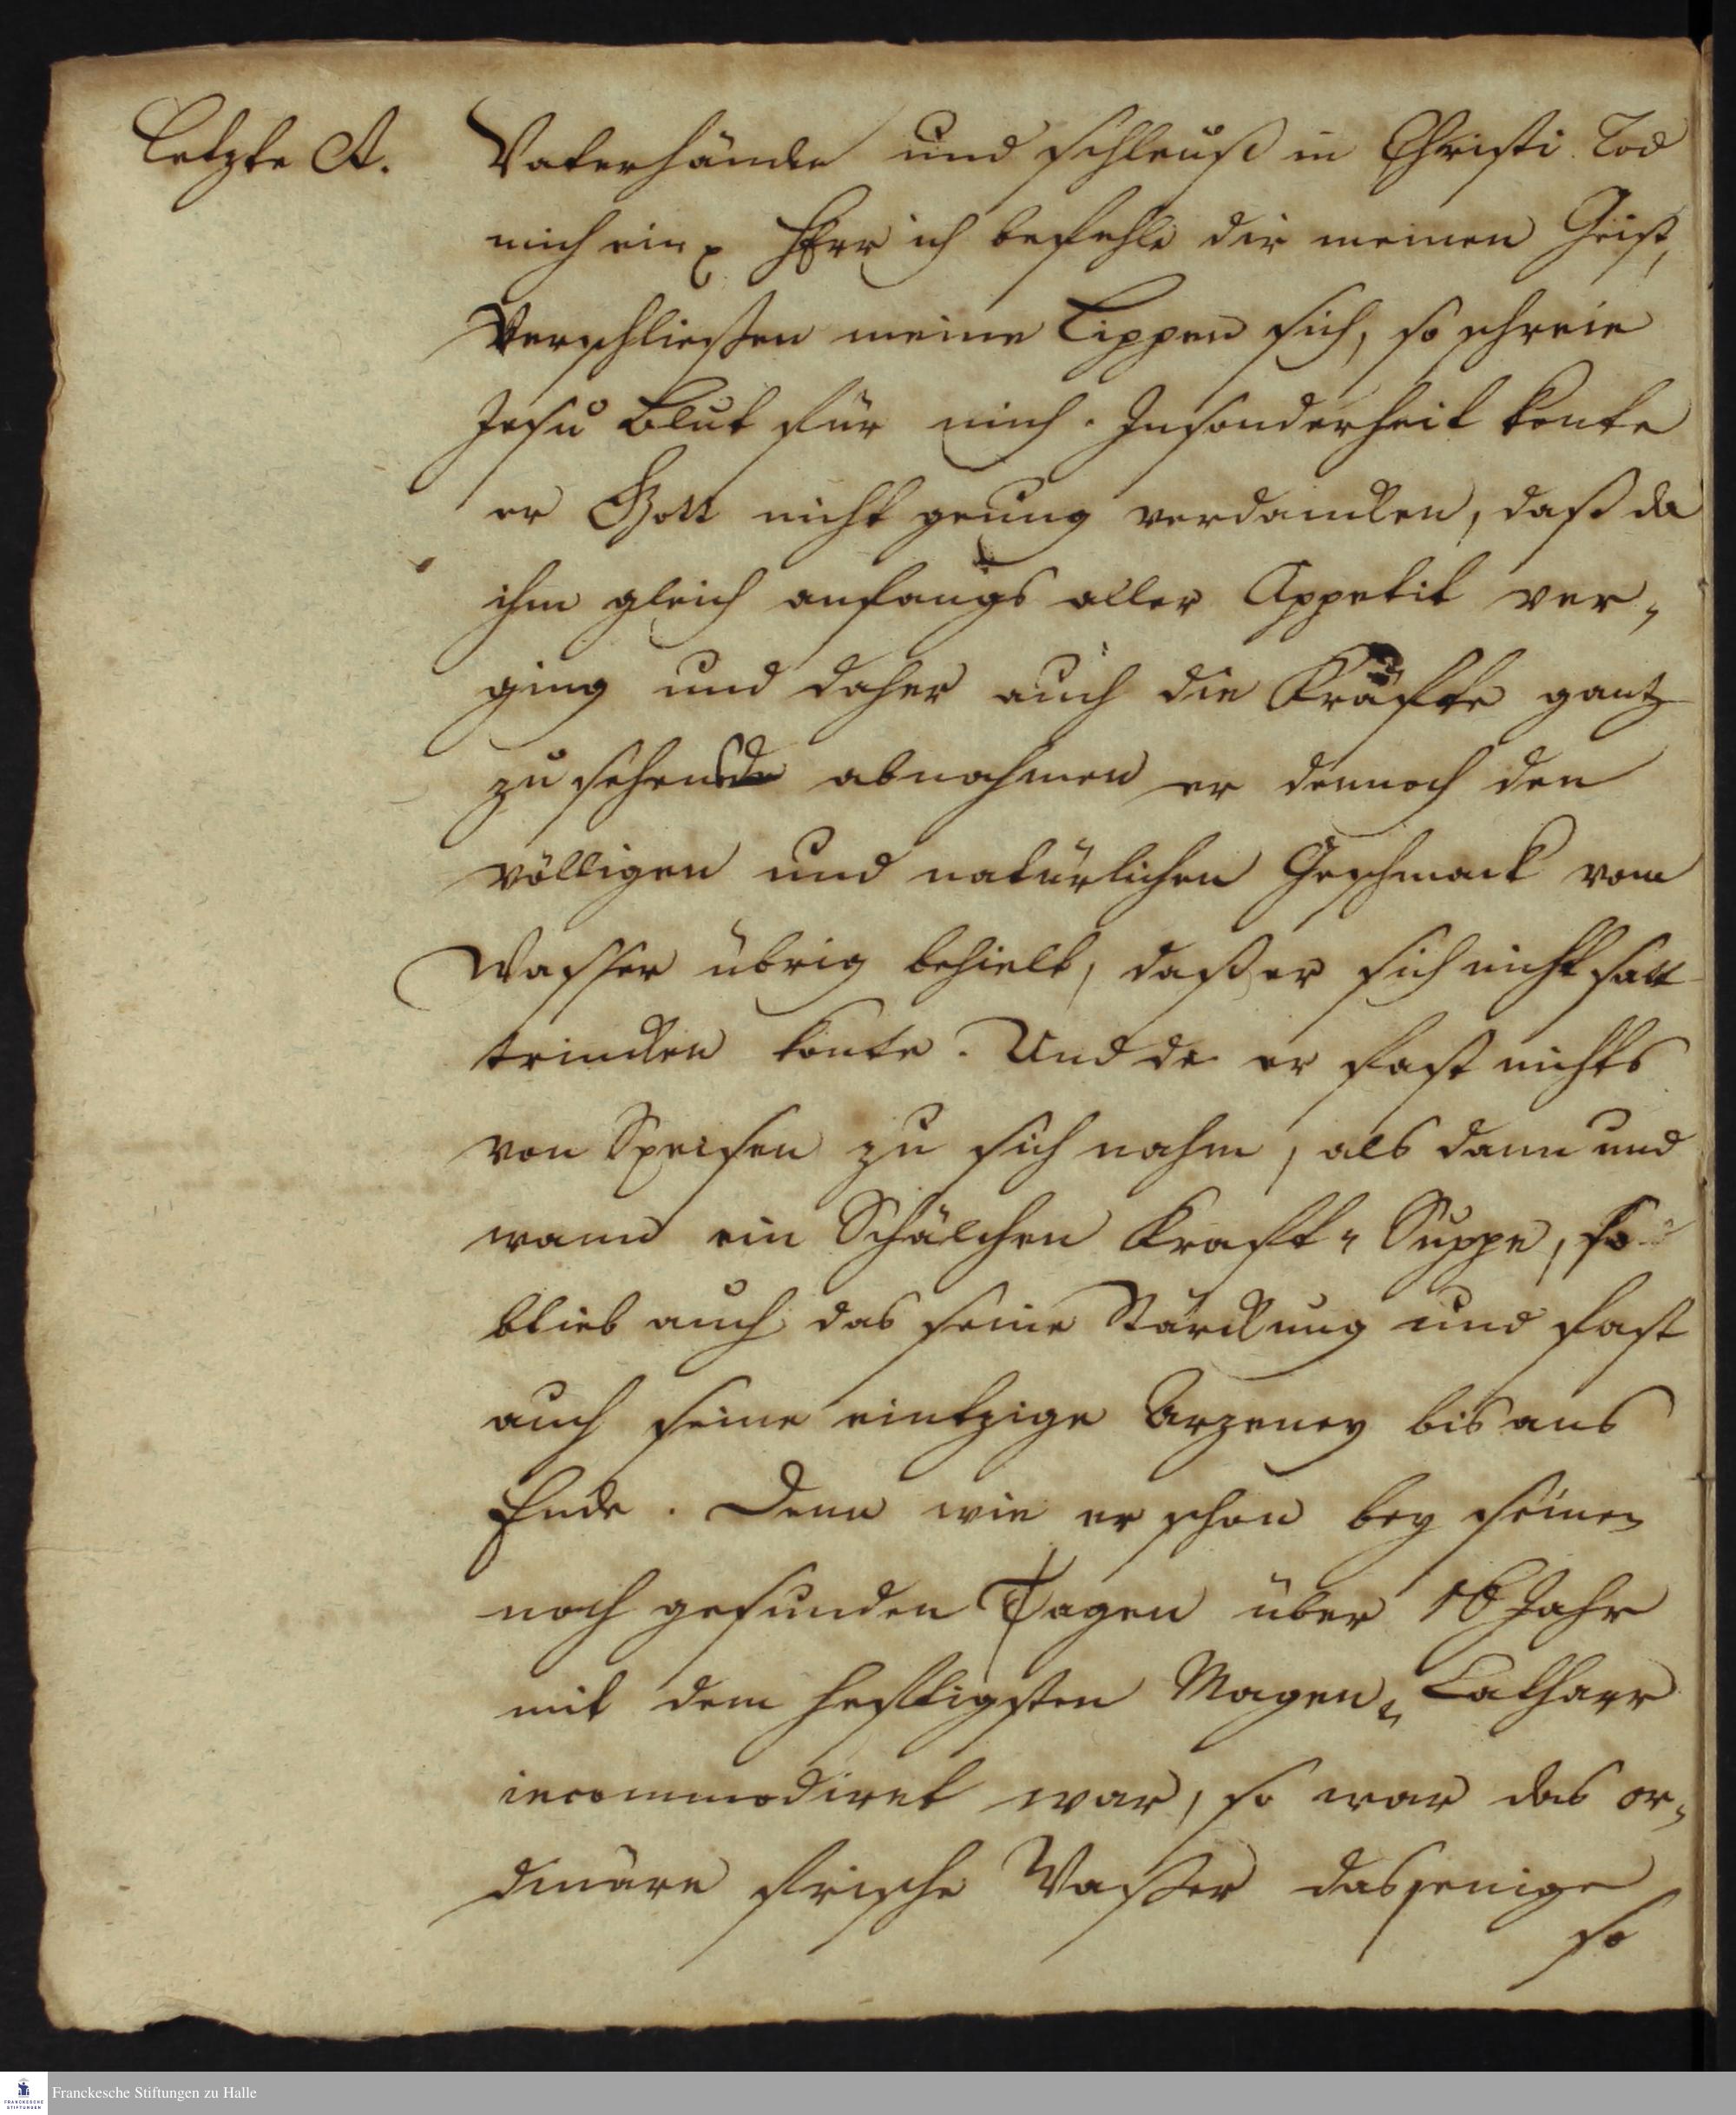 Letzte A.
Vaterhände und schleuß in Christi Tod
mich ein ꝛc HErr ich befehle dir meinen Geist,
Verschließen meine Lippen sich, so schreie
Jesu Blut für mich. Insonderheit konte
er Gott nicht genug verdancken, daß da
ihm gleich anfangs aller Appetit ver-
ging und daher auch die Kräffte gantz
zu sehends abnahmen er dennoch den
völligen und natürlichen Geschmack vom
Wasser übrig behielt, daß er sich nicht satt
trincken konte. Und da er fast nichts
von Speisen zu sich nahm, als dann und
wann ein Schälchen Kraft-Suppe, so
blieb auch das seine Stärckung und fast
auch seine eintzige Arzeney bis ans
Ende. Denn wie er schon bey seinen
noch gesunden Tagen über 16 Jahr
mit dem hefftigsten Magen-Catharr
incommodiret war, so war das or-
dinäre frische Waßer dasjenige
so
Franckesche Stiftungen zu Halle
FRANCKESCHE
STIFTUNGEN